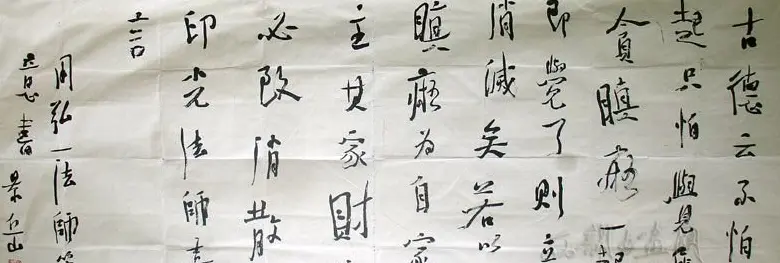 古德云不怕
起只怕覺
貪瞋癡一起
即覺了則立
消滅矣若以
瞋癡為自家
主其家財
必致消散
印光法師
用弘一法師筆
書